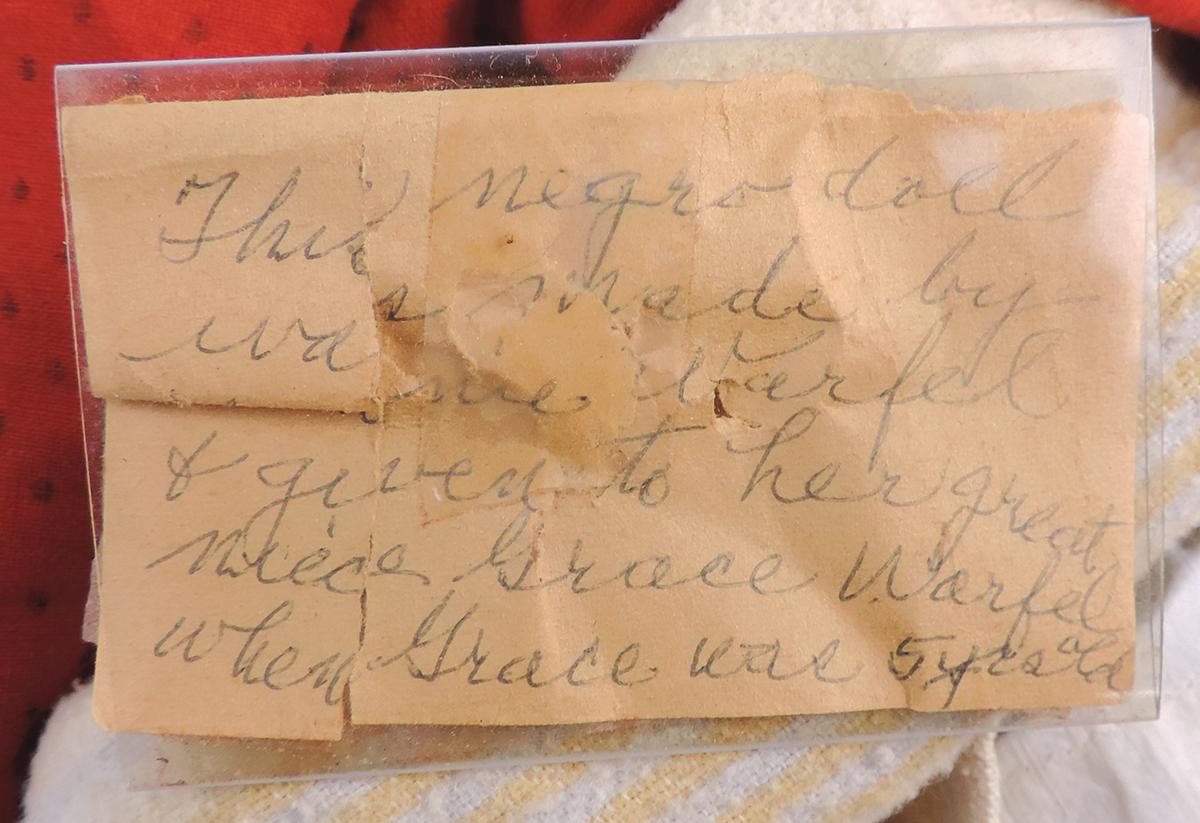 This negro doll
was made by
Warfel
& given to her great
niece Grace Warfel
when Grace was 5 yrs old